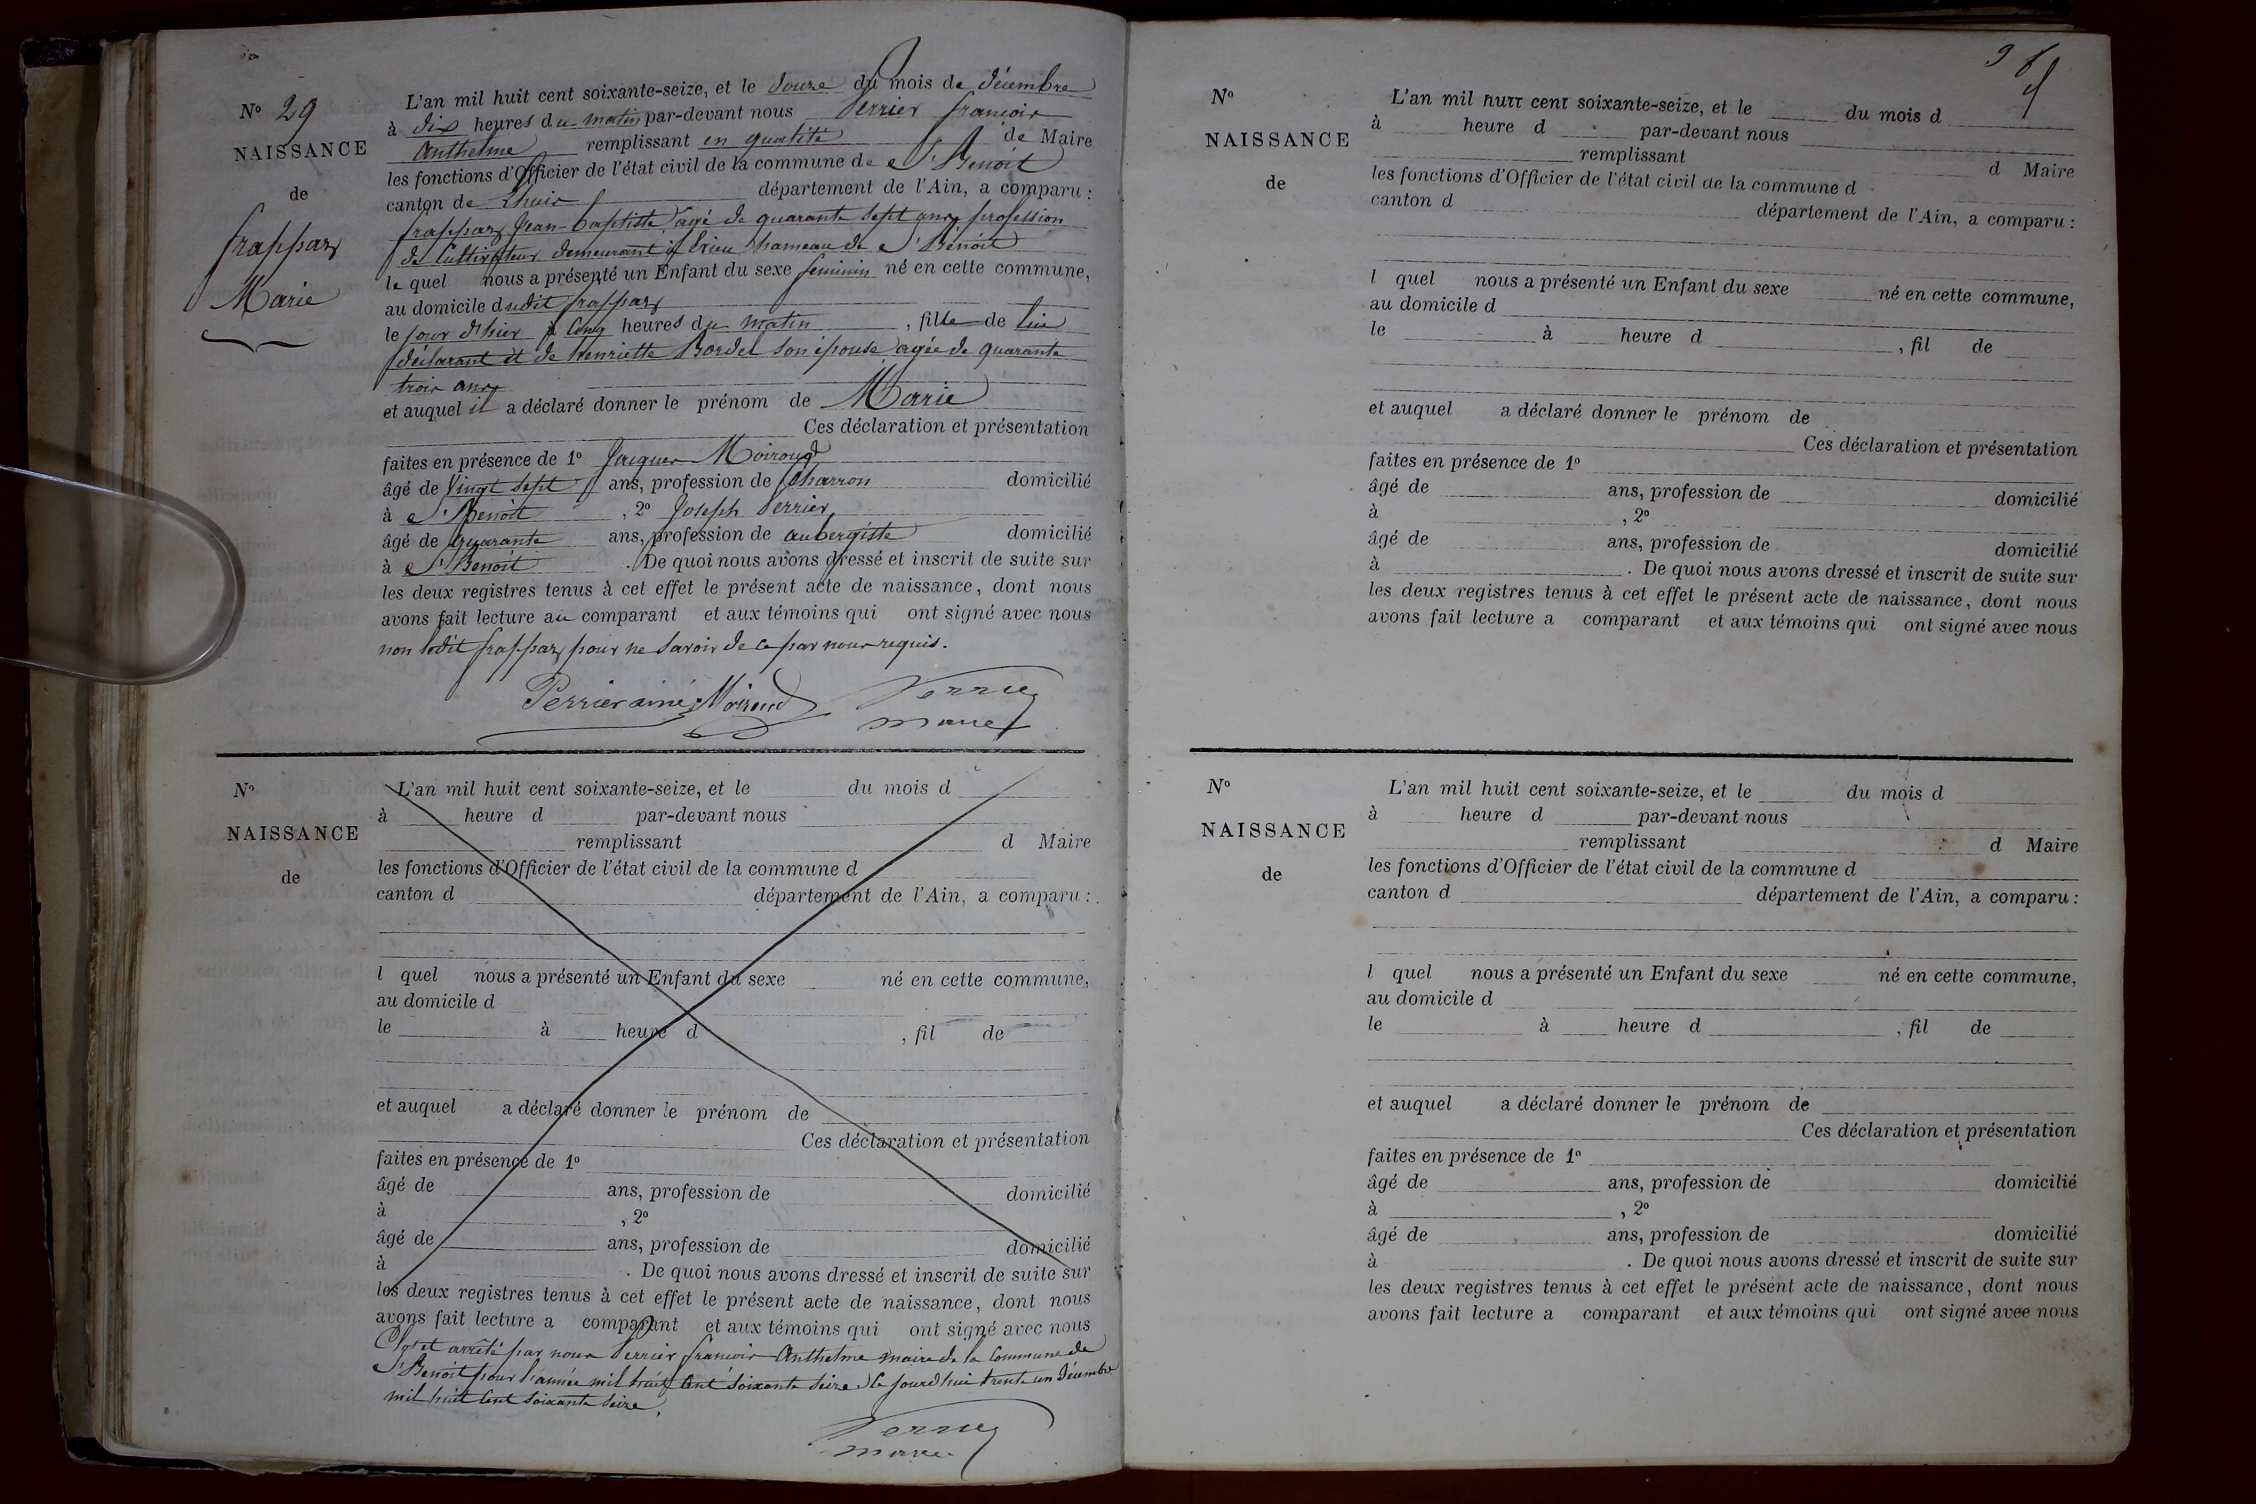 N° 29
NAISSANCE
de
frappaz
Marie
L'an mil huit cent soixante-seize, et le douze du mois de décembre
à dix heures du matin par-devant nous Perrier françois
Anthelme remplissant en qualité de Maire
les fonctions d'Officier de l'état civil de la commune de St Benoit
canton de Lhuis département de l'Ain, a comparu :
frappaz Jean-baptiste, agé de quarante sept ans, profession
de Cultivateur demeurant à hameau de St Benoit
le quel nous a présenté un Enfant du sexe féminin né en cette commune,
au domicile dudit frappaz
le jour d'hier à Cinq heures du matin , fille de lui
déclarant et de henriette Bordel son épouse, agée de quarante
trois ans
et auquel il a déclaré donner le prénom de Marie
Ces déclaration et présentation
faites en présence de 1° Jacques Moiroud
âgé de Vingt sept ans, profession de Charron domicilié
à St Benoit , 2° Joseph Perrier
âgé de quarante ans, profession de aubergiste domicilié
à St Benoit . De quoi nous avons dressé et inscrit de suite sur
les deux registres tenus à cet effet le présent acte de naissance, dont nous
avons fait lecture au comparant et aux témoins qui ont signé avec nous
non ledit frappaz pour ne savoir de ce par nous requis.
Perrier ainé Moiroud Perrier
maire
N°
NAISSANCE
de
L'an mil huit cent soixante-seize, et le du mois d
à heure d par-devant nous
remplissant d Maire
les fonctions d'Officier de l'état civil de la commune d
canton d département de l'Ain, a comparu :
l quel nous a présenté un Enfant du sexe né en cette commune,
au domicile d
le à heure d , fil de
et auquel a déclaré donner le prénom de
Ces déclaration et présentation
faites en présence de 1°
âgé de ans, profession de domicilié
à , 2°
âgé de ans, profession de domicilié
à . De quoi nous avons dressé et inscrit de suite sur
les deux registres tenus à cet effet le présent acte de naissance, dont nous
avons fait lecture a comparant et aux témoins qui ont signé avec nous
Clos et arrêté par nous Perrier françois Anthelme maire de la Commune de
St Benoit pour l'année mil huit Cent soixante seize, le jourd'hui trente un décembre
mil huit Cent soixante seize.
Perrier
maire
N°
NAISSANCE
de
L'an mil huit cent soixante-seize, et le du mois d
à heure d par-devant nous
remplissant d Maire
les fonctions d'Officier de l'état civil de la commune d
canton d département de l'Ain, a comparu :
l quel nous a présenté un Enfant du sexe né en cette commune,
au domicile d
le à heure d , fil de
et auquel a déclaré donner le prénom de
Ces déclaration et présentation
faites en présence de 1°
âgé de ans, profession de domicilié
à , 2°
âgé de ans, profession de domicilié
à . De quoi nous avons dressé et inscrit de suite sur
les deux registres tenus à cet effet le présent acte de naissance, dont nous
avons fait lecture a comparant et aux témoins qui ont signé avec nous
N°
NAISSANCE
de
L'an mil huit cent soixante-seize, et le du mois d
à heure d par-devant nous
remplissant d Maire
les fonctions d'Officier de l'état civil de la commune d
canton d département de l'Ain, a comparu :
l quel nous a présenté un Enfant du sexe né en cette commune,
au domicile d
le à heure d , fil de
et auquel a déclaré donner le prénom de
Ces déclaration et présentation
faites en présence de 1°
âgé de ans, profession de domicilié
à , 2°
âgé de ans, profession de domicilié
à . De quoi nous avons dressé et inscrit de suite sur
les deux registres tenus à cet effet le présent acte de naissance, dont nous
avons fait lecture a comparant et aux témoins qui ont signé avec nous